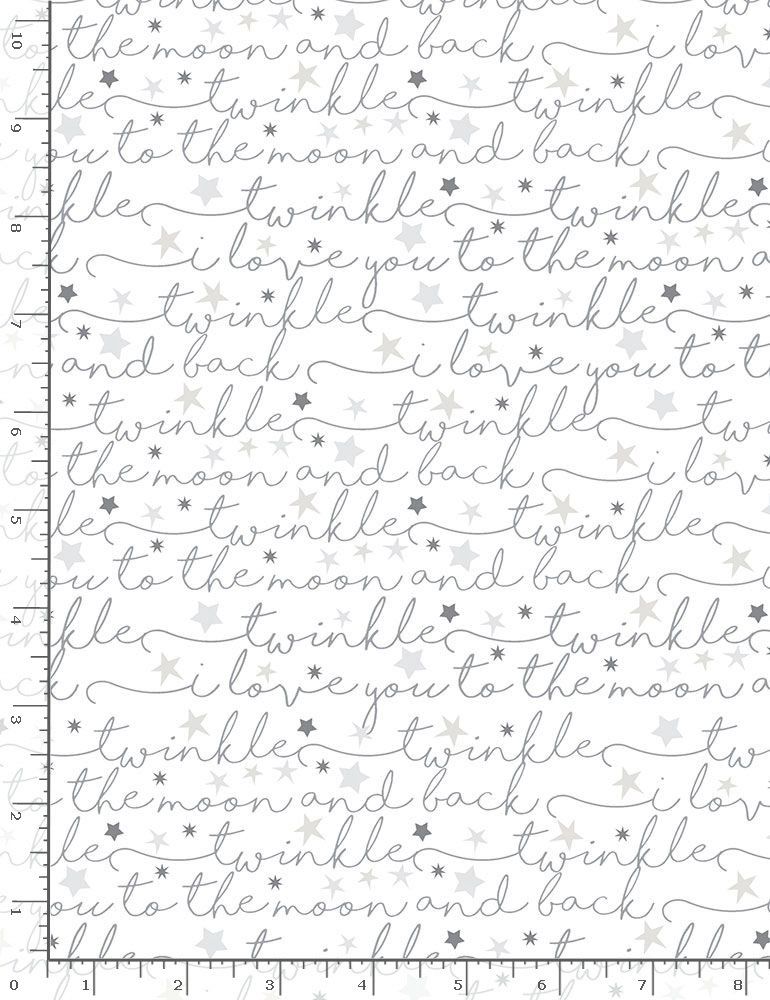 the moon and back i lov
kle twinkle twinkle
you to the moon and back i
kle twinkle twinkle
k i love you to the moon a
twinkle twinkle
and back i love you to t
twinkle twinkle twi
the moon and back i lov
kle twinkle twinkle
you to the moon and back
kle twinkle twinkle
k i love you to the moon a
twinkle twinkle tw
the moon and back i lov
kle twinkle twinkle
you to the moon and back
10
9
8
7
6
5
4
3
2
1
0 1 2 3 4 5 6 7 8